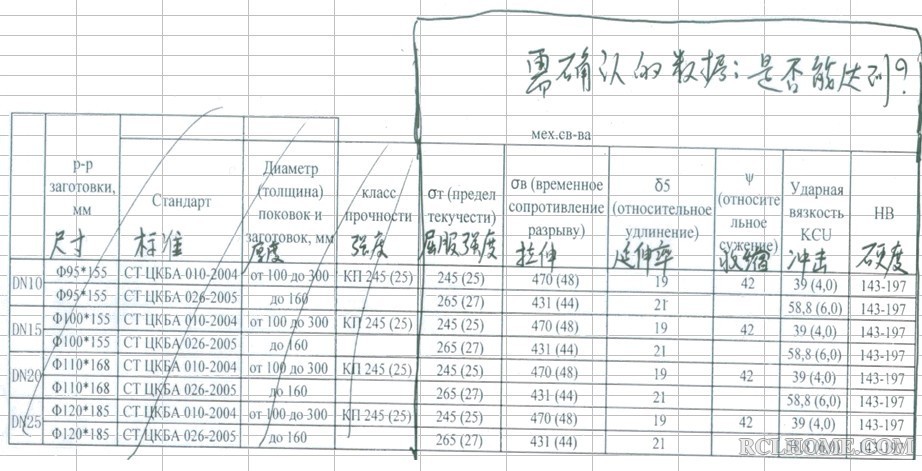 需确认的数据:是否能达到?
мех.св-ва
р-р заготовки, мм
Стандарт
Диаметр (толщина) поковок и заготовок, мм
класс прочности
σт (предел текучести)
σв (временное сопротивление разрыву)
δ5 (относительное удлинение)
ψ (относительное сужение)
Ударная вязкость KCU
HB
尺寸 标准 厚度 强度 屈服强度 拉伸 延伸率 收缩 冲击 硬度
DN10 Ф95*155 СТ ЦКБА 010-2004 от 100 до 300 КП 245 (25) 245 (25) 470 (48) 19 42 39 (4,0) 143-197
Ф95*155 СТ ЦКБА 026-2005 до 160 265 (27) 431 (44) 21 58,8 (6,0) 143-197
DN15 Ф100*155 СТ ЦКБА 010-2004 от 100 до 300 КП 245 (25) 245 (25) 470 (48) 19 42 39 (4,0) 143-197
Ф100*155 СТ ЦКБА 026-2005 до 160 265 (27) 431 (44) 21 58,8 (6,0) 143-197
DN20 Ф110*168 СТ ЦКБА 010-2004 от 100 до 300 КП 245 (25) 245 (25) 470 (48) 19 42 39 (4,0) 143-197
Ф110*168 СТ ЦКБА 026-2005 до 160 265 (27) 431 (44) 21 58,8 (6,0) 143-197
DN25 Ф120*185 СТ ЦКБА 010-2004 от 100 до 300 КП 245 (25) 245 (25) 470 (48) 19 42 39 (4,0) 143-197
Ф120*185 СТ ЦКБА 026-2005 до 160 265 (27) 431 (44) 21 143-197
RCLHOME.COM